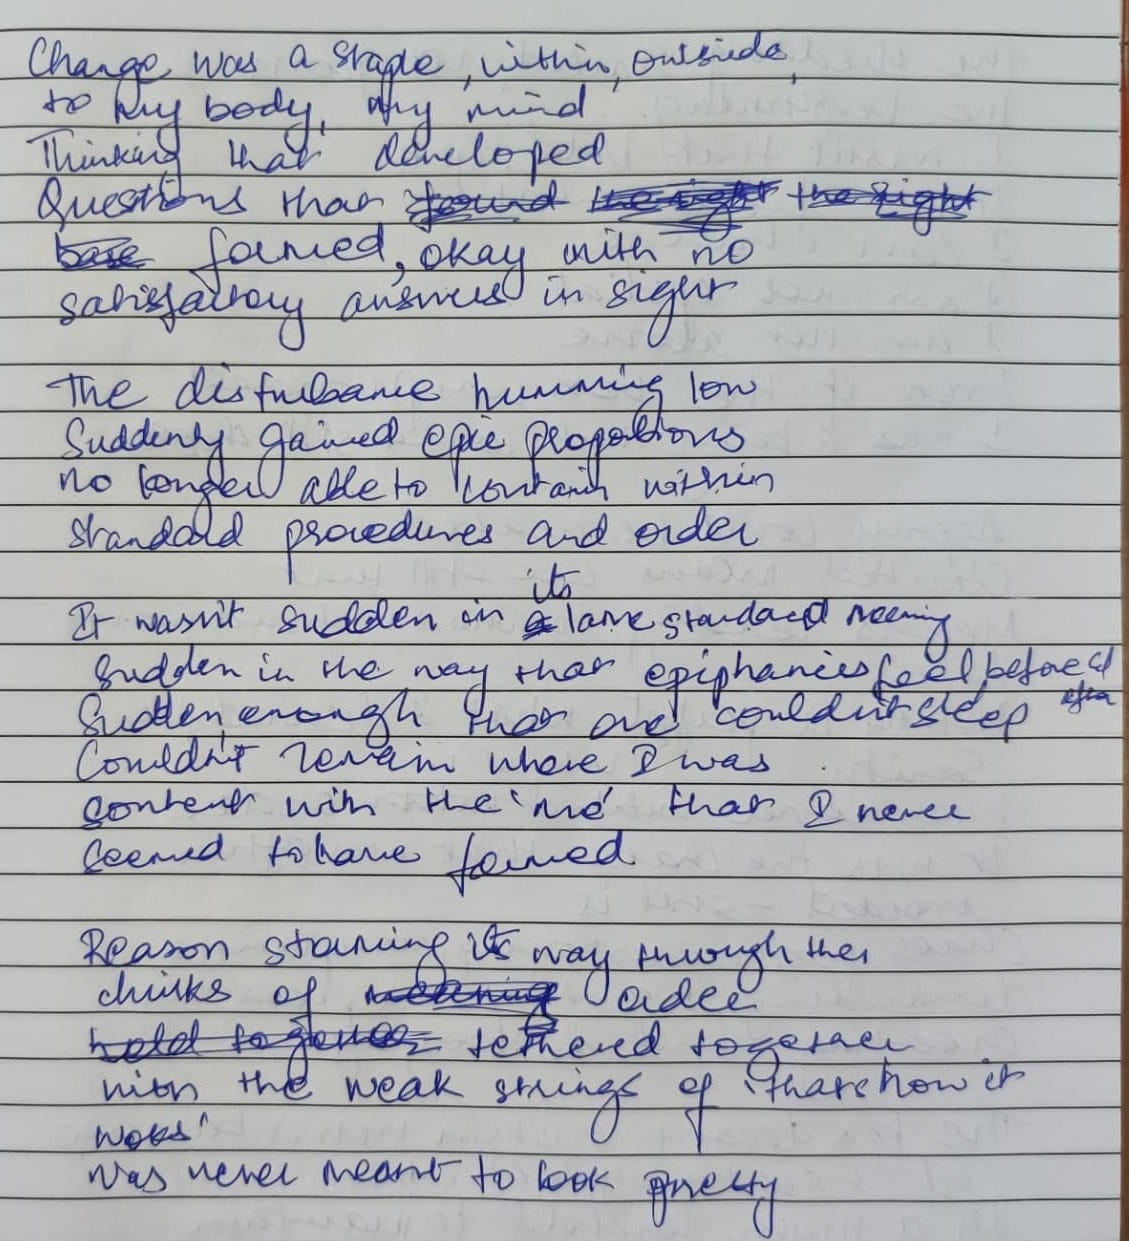 Change was a staple, within, outside,
to my body, my mind
Thinking that developed
Questions that found the right the right
base formed, okay with no
satisfactory answers in sight
The disturbance humming low
Suddenly gained epic propotions
no longer able to contain within
standard procedures and order
its
It wasn't sudden in a lame standard meaning
Sudden in the way that epiphanies feel before &
after
Sudden enough that one couldn't sleep
Couldn't remain where I was
content with the 'me' that I never
seemed to have formed
Reason straining its way through the
chinks of meaning order
held together tethered together
with the weak strings of 'thats how it
works'
was never meant to look pretty